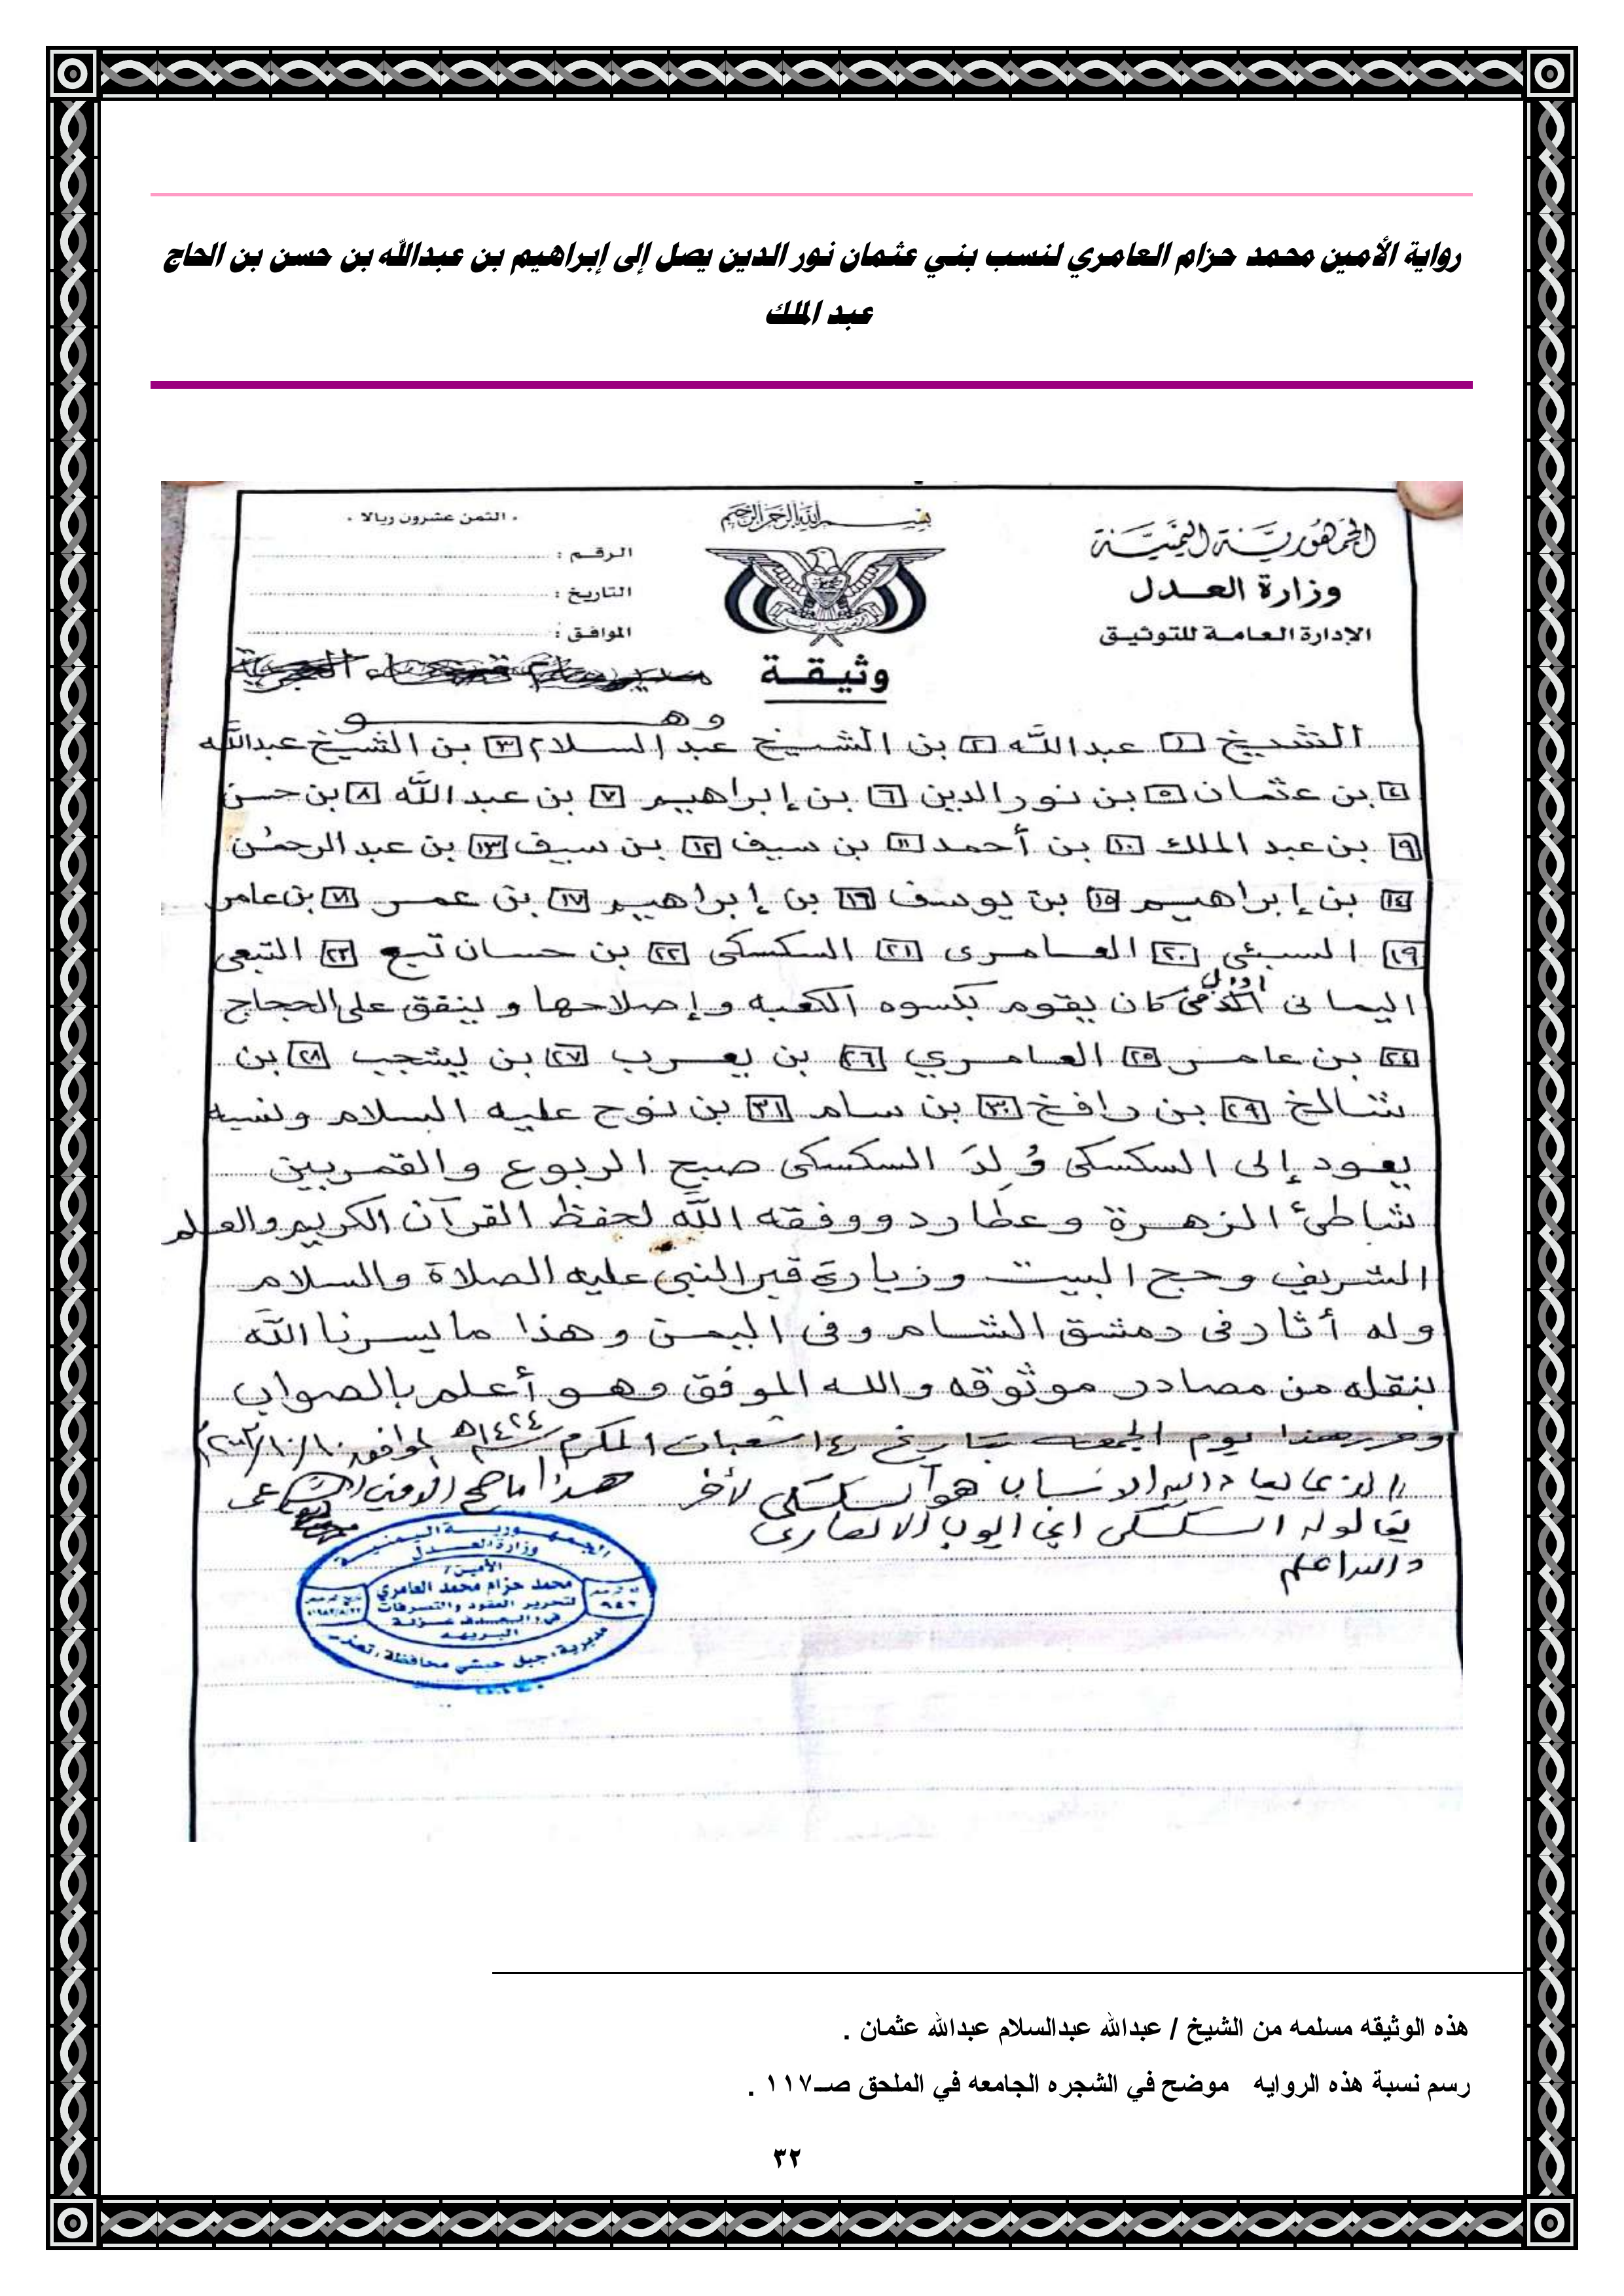 رواية الأمين محمد حزام العامري لنسب بني عثمان نور الدين يصل إلى إبراهيم بن عبدالله بن حسن بن الحاج
عبد الملك
الجمهورية اليمنية
وزارة العدل
الإدارة العامة للتوثيق
بسم الله الرحمن الرحيم
وثيقة
. الثمن عشرون ريالا .
الرقم :
التاريخ :
الموافق :
وهو
الشيخ ١ عبدالله ٢ بن الشيخ عبد السلام ٣ بن الشيخ عبدالله
٤ بن عثمان ٥ بن نور الدين ٦ بن إبراهيم ٧ بن عبد الله ٨ بن حسن
٩ بن عبد الملك ١٠ بن أحمد ١١ بن سيف ١٢ بن سيف ١٣ بن عبد الرحمن
١٤ بن إبراهيم ١٥ بن يوسف ١٦ بن إبراهيم ١٧ بن عمر ١٨ بن عامر
١٩ السبئي ٢٠ العامرى ٢١ السكسكى ٢٢ بن حسان تبع ٢٣ التبعى
اليمانى كان يقوم بكسوه الكعبه وإصلاحها وينفق على الحجاج
٢٤ بن عامر ٢٥ العامري ٢٦ بن يعرب ٢٧ بن يشجب ٢٨ بن
شالخ ٢٩ بن رافخ ٣٠ بن سام ٣١ بن نوح عليه السلام ونسبه
يعود إلى السكسكى وُلِدَ السكسكى صبح الربوع والقمر بين
شاطئ الزهرة وعطارد ووفقه الله لحفظ القرآن الكريم والعلم
الشريف وحج البيت وزيارة قبر النبي عليه الصلاة والسلام
وله أثار فى دمشق الشام وفى اليمن وهذا ما يسرنا الله
بنقله من مصادر موثوقه والله الموفق وهو أعلم بالصواب
وحرر هذا يوم الجمعه بتاريخ ١٤ شعبان المكرم ١٤٢٤هـ الموافق ١٠/١٠/٢٠٠٣م
هو السكسكي لأخر هذا ما صح
يقال له السكسكى ابي ايوب الانصارى
والله اعلم
الجمهورية اليمنية
وزارة العدل
الأمين /
محمد حزام محمد العامري
لتحرير العقود والتصرفات
مديرية : جبل حبشي محافظة : تعز
هذه الوثيقه مسلمه من الشيخ / عبدالله عبدالسلام عبدالله عثمان .
رسم نسبة هذه الروايه موضح في الشجره الجامعه في الملحق صـ١١٧ .
٣٢